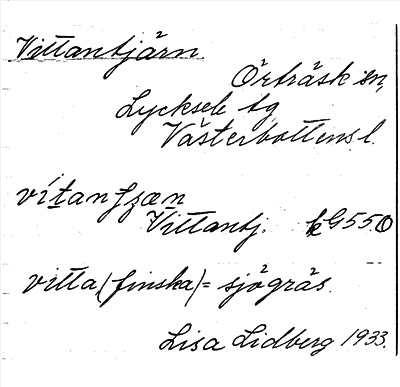 Vittantjärn
Örträsk sn,
Lycksele tg
Västerbottens l.
vítanʃzæn
Vittantj. kG550
vitta (finska) = sjögräs.
Lisa Lidberg 1933.